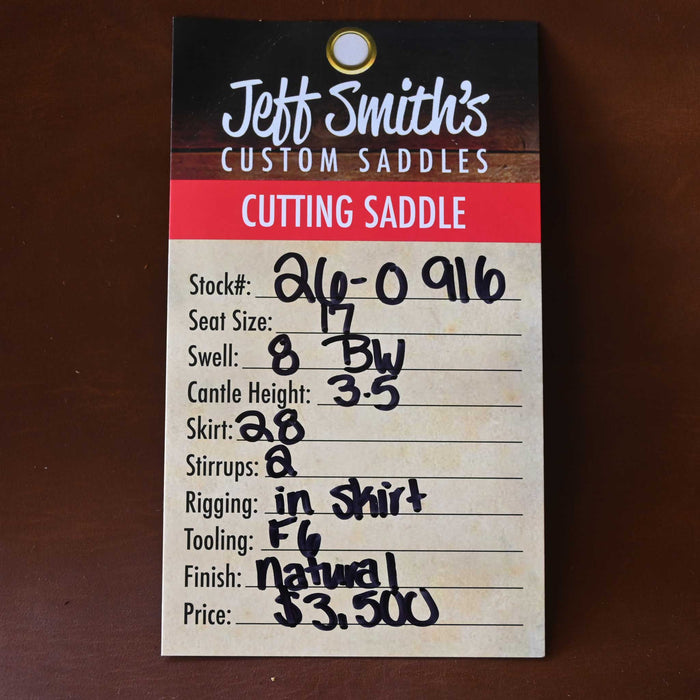 Jeff Smith's
CUSTOM SADDLES
CUTTING SADDLE
Stock#: 26-0916
Seat Size: 17
Swell: 8 BW
Cantle Height: 3.5
Skirt: 28
Stirrups: 2
Rigging: in skirt
Tooling: F6
Finish: natural
Price: $3,500